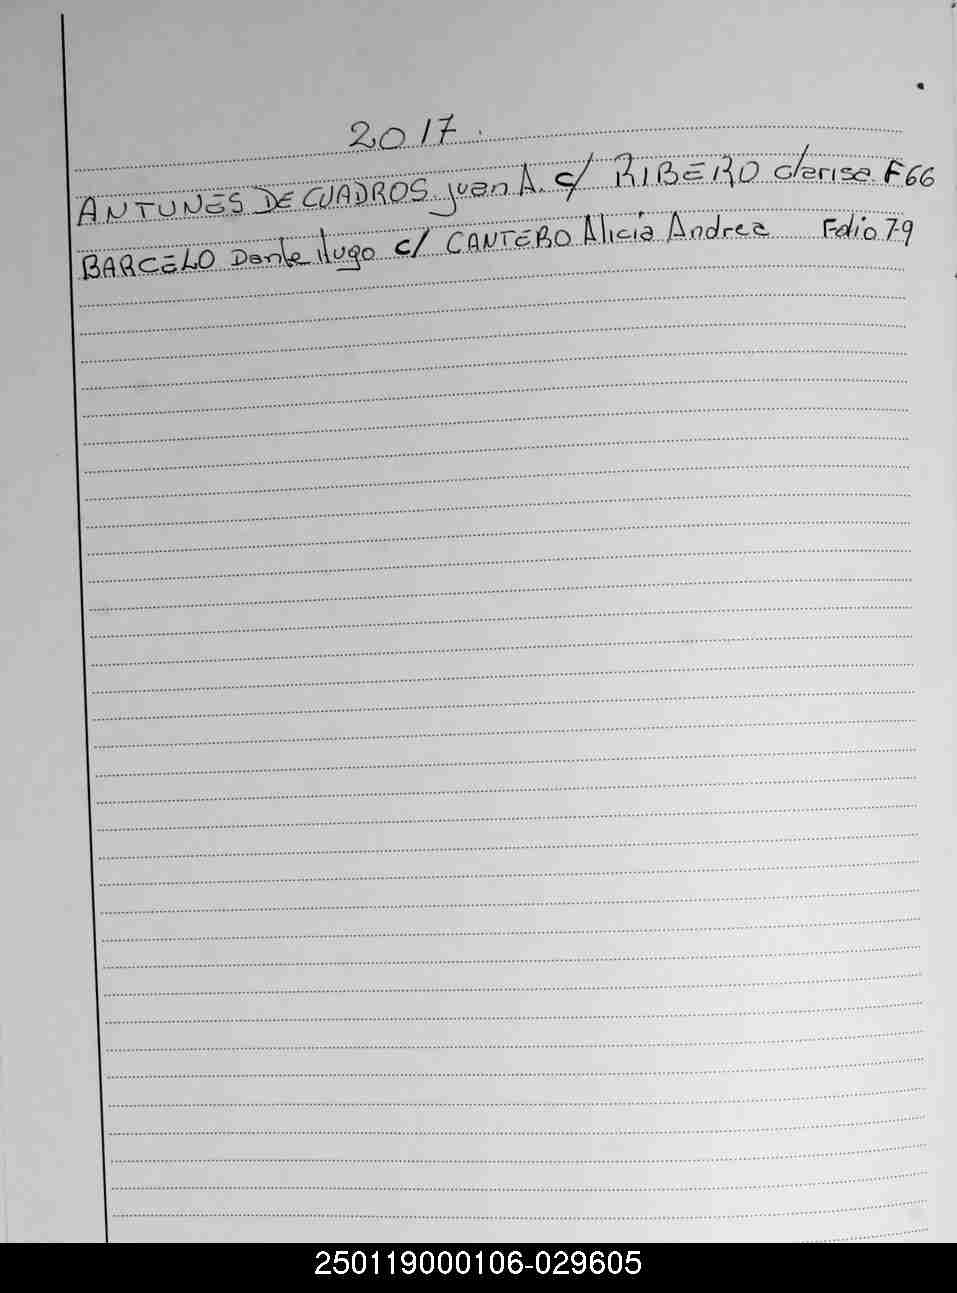 2017.
ANTUNES DE CUADROS juan A. c/ RIBEIRO clarisa. F66
BARCELO Dante Hugo c/ CANTERO Alicia Andrea Folio 79
250119000106-029605